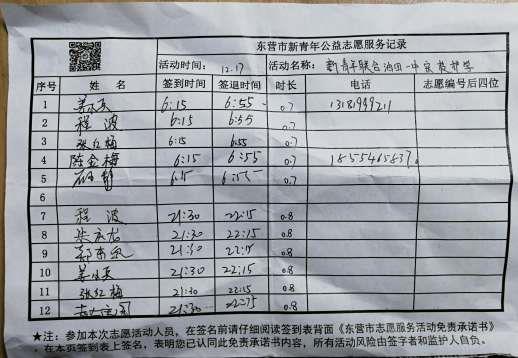 东营市新青年公益志愿服务记录
活动时间： 12.17 活动名称： 新青年联合油田一中
序号 姓 名 签到时间 签退时间 时长 电话 志愿编号后四位
1 6:15 6:55 0.7
2 程波 6:15 6:55 0.7
3 张红梅 6:15 6:55 0.7
4 陈金梅 6:15 6:55 0.7
5 6:15 6:55 0.7
6
7 程波 21:30 22:15 0.8
8 21:30 22:15 0.8
9 21:30 22:15 0.8
10 21:30 22:15 0.8
11 张红梅 21:30 22:15 0.8
12 21:30 22:15 0.8
★注：参加本次志愿活动人员，在签名前请仔细阅读签到表背面《东营市志愿服务活动免责承诺书》
在本页签到表上签名，表明您已认同此免责承诺书内容，所有活动风险由签字者和监护人自负。